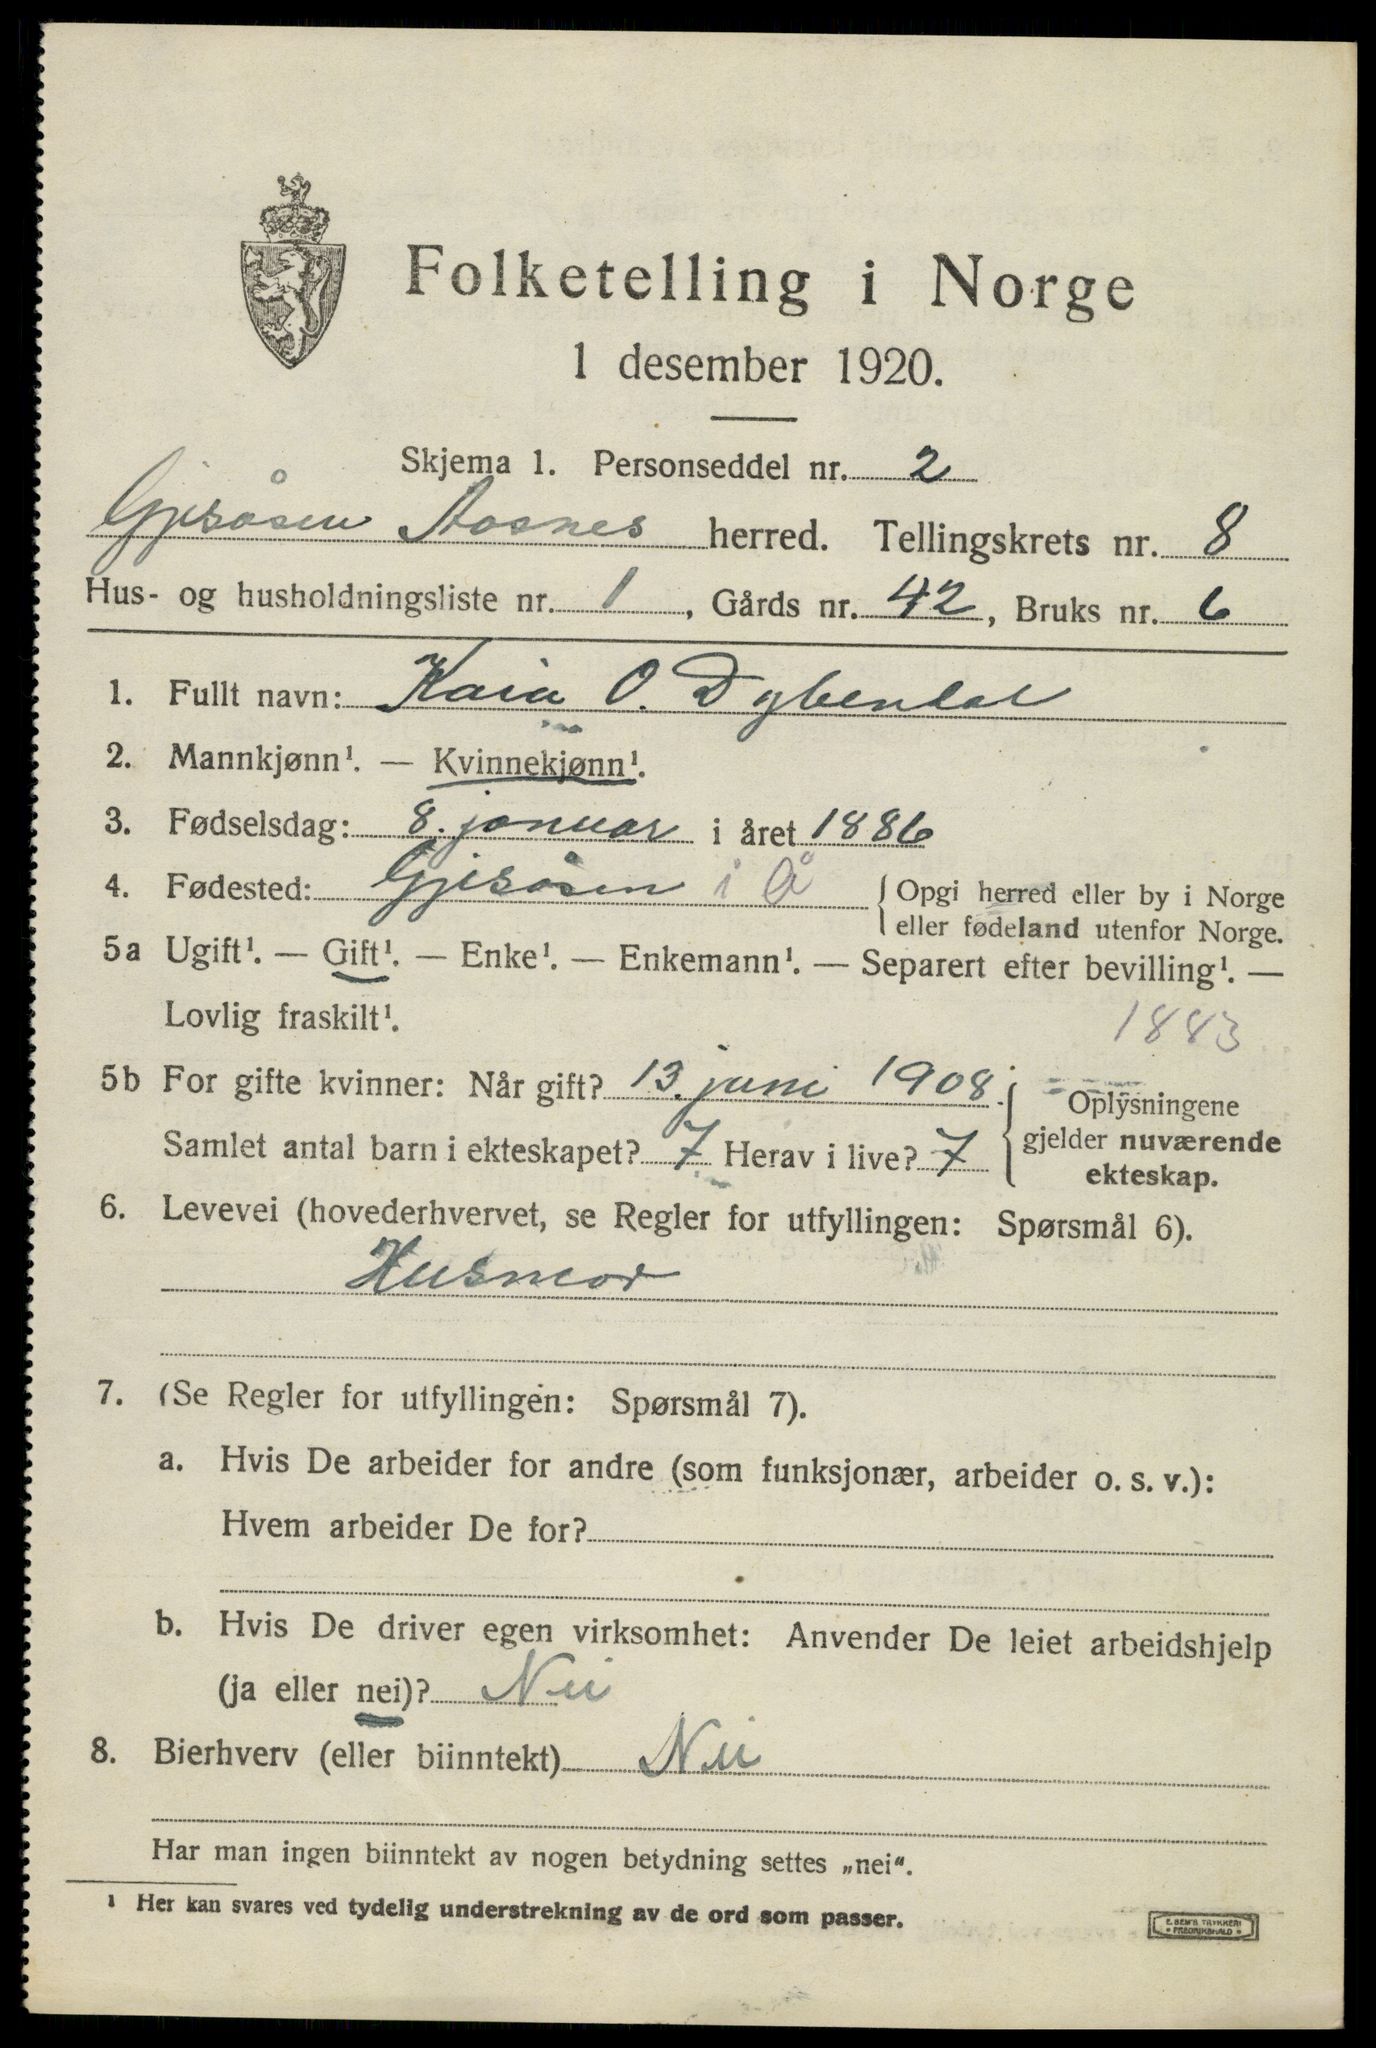 Folketelling i Norge
1 desember 1920.
Skjema 1. Personseddel nr. 2
Gjesåsen Aasnes herred. Tellingskrets nr. 8
Hus- og husholdningsliste nr. 1, Gårds nr. 42, Bruks nr. 6
1. Fullt navn: Kaia O. Dybendal
2. Mannkjønn¹. — Kvinnekjønn¹.
3. Fødselsdag: 8. januar i året 1886
4. Fødested: Gjesåsen i Å { Opgi herred eller by i Norge
eller fødeland utenfor Norge.
5a Ugift¹. — Gift¹. — Enke¹. — Enkemann¹. — Separert efter bevilling¹. —
Lovlig fraskilt¹. 1883
5b For gifte kvinner: Når gift? 13. juni 1908. { Oplysningene
Samlet antal barn i ekteskapet? 7 Herav i live? 7 gjelder nuværende
ekteskap.
6. Levevei (hovederhvervet, se Regler for utfyllingen: Spørsmål 6).
Husmor
7. (Se Regler for utfyllingen: Spørsmål 7).
a. Hvis De arbeider for andre (som funksjonær, arbeider o. s. v.):
Hvem arbeider De for?
b. Hvis De driver egen virksomhet: Anvender De leiet arbeidshjelp
(ja eller nei)? Nei
8. Bierhverv (eller biinntekt) Nei
Har man ingen biinntekt av nogen betydning settes „nei“.
¹ Her kan svares ved tydelig understrekning av de ord som passer.
E. SEM'S TRYKKERI
FREDRIKSHALD